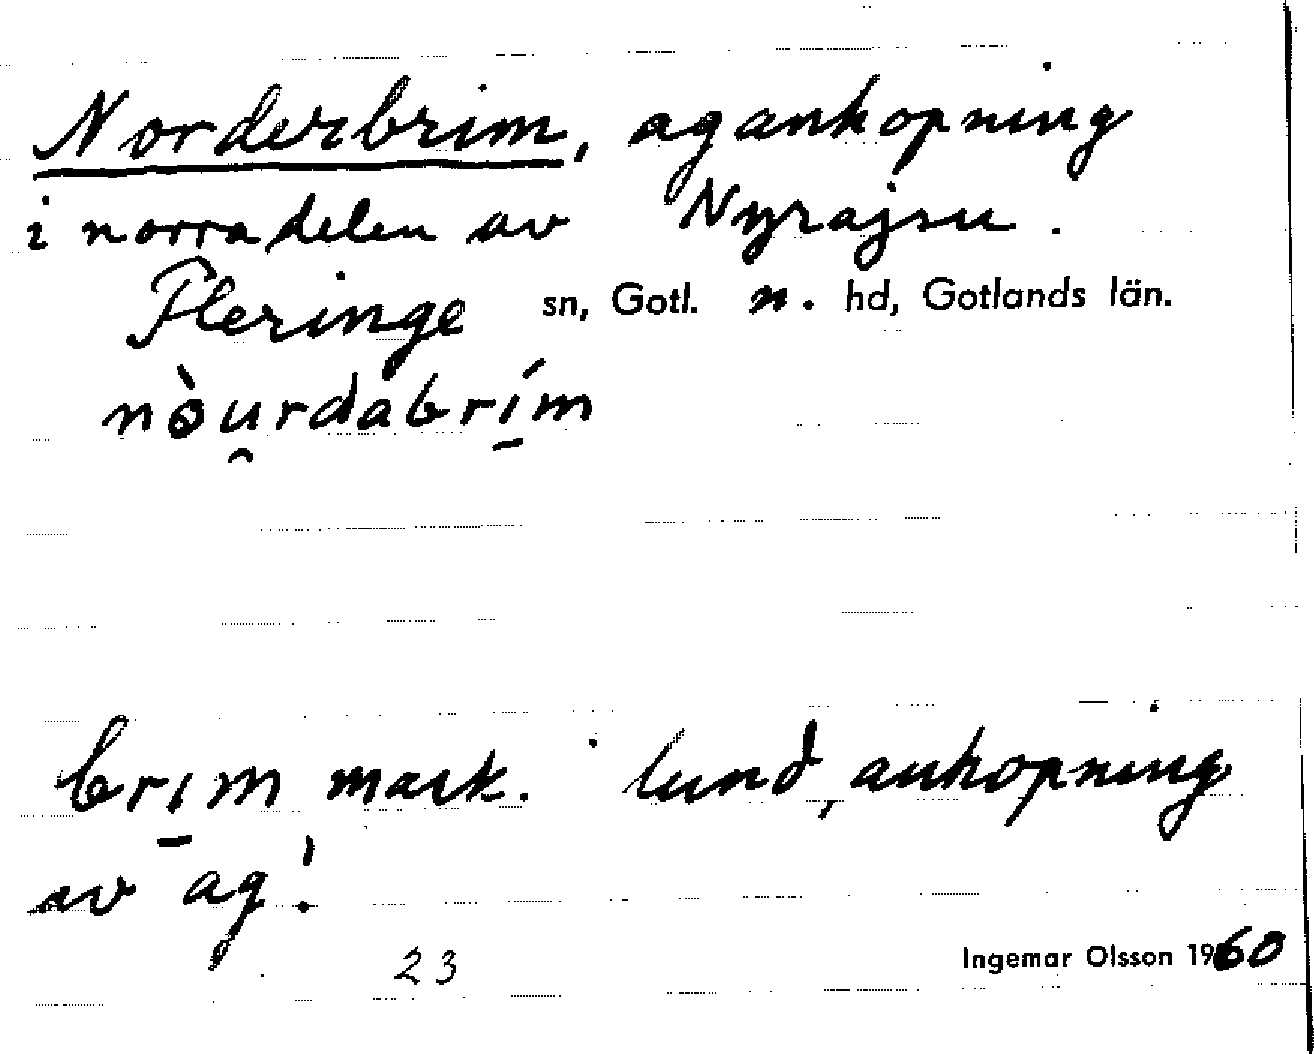 Norderbrim, aganhopning
i norra delen av Nyrajsu.
Fleringe sn, Gotl. n. hd, Gotlands län.
nòu̯rdabrí̱m
bri̱m mask. lund, anhopning
av ag!
23
Ingemar Olsson 1960